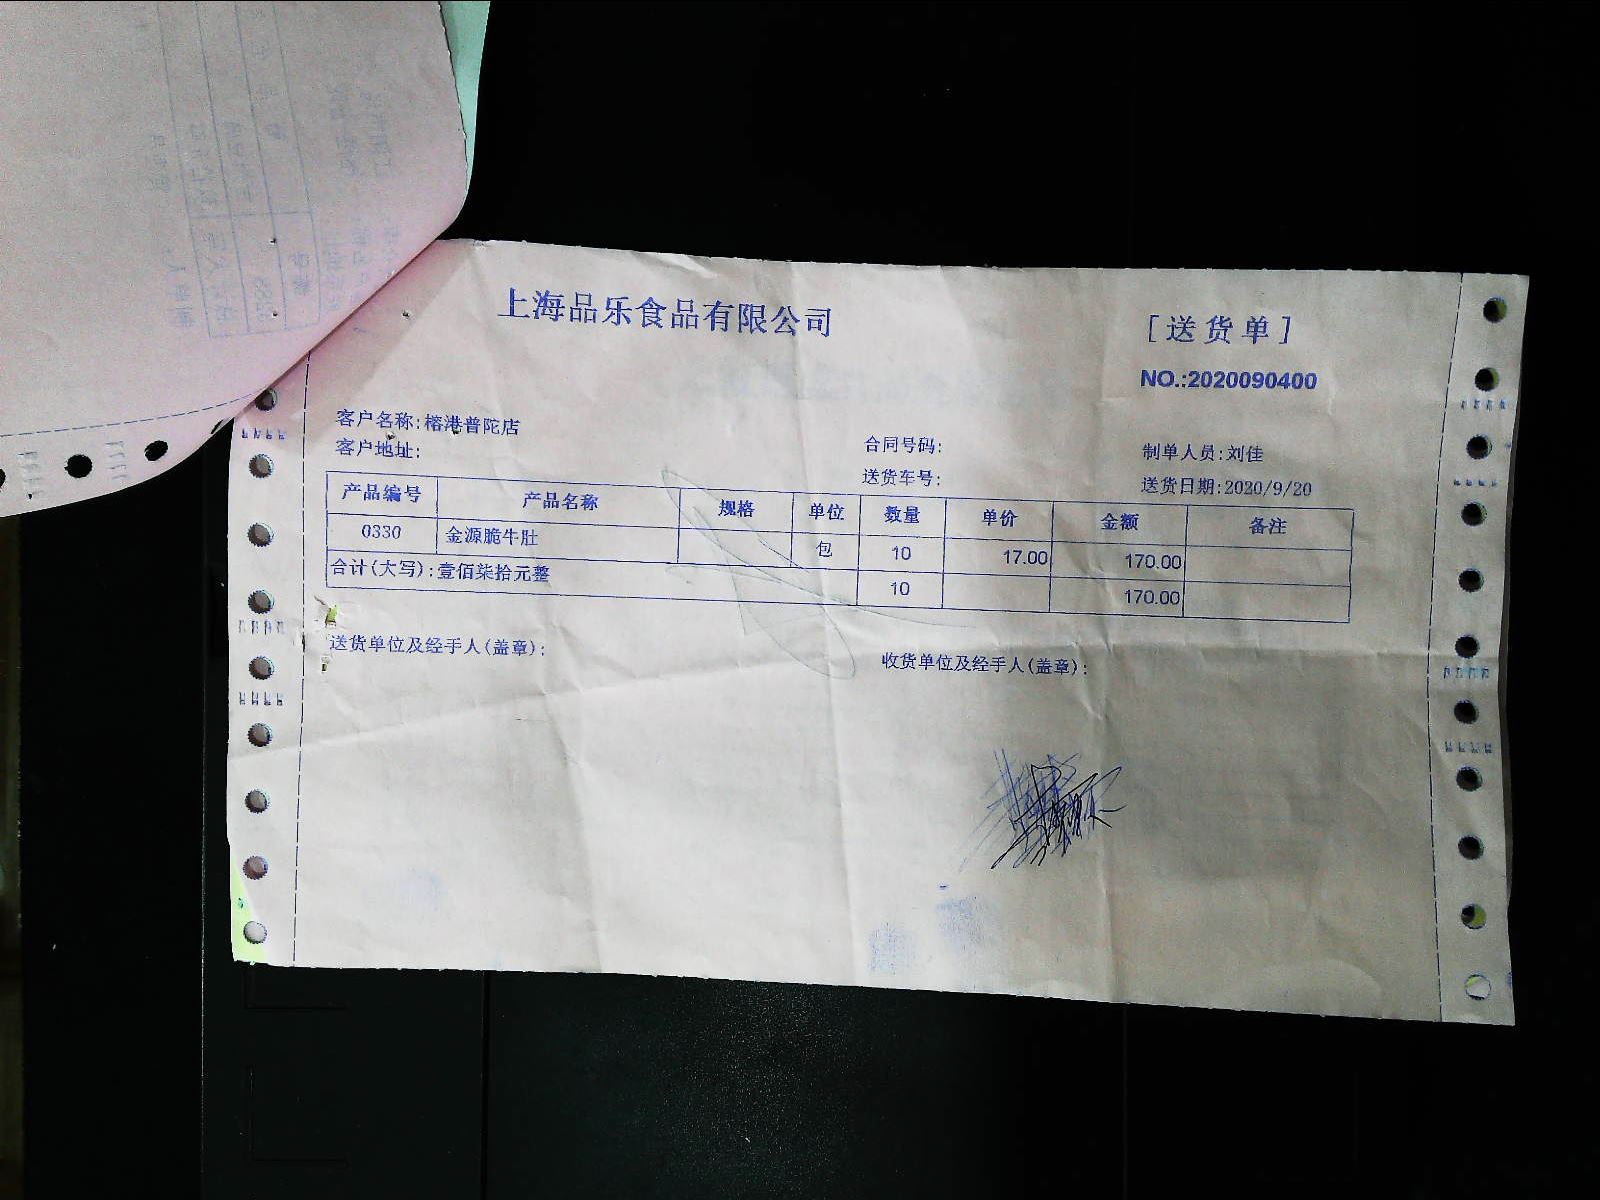 上海品乐食品有限公司
[送货单]
NO.:2020090400
客户名称:榕港普陀店
客户地址:
合同号码:
制单人员:刘佳
送货车号:
送货日期:2020/9/20
产品编号 产品名称 规格 单位 数量 单价 金额 备注
0330 金源脆牛肚 包 10 17.00 170.00
合计(大写):壹佰柒拾元整 10 170.00
送货单位及经手人(盖章):
收货单位及经手人(盖章):